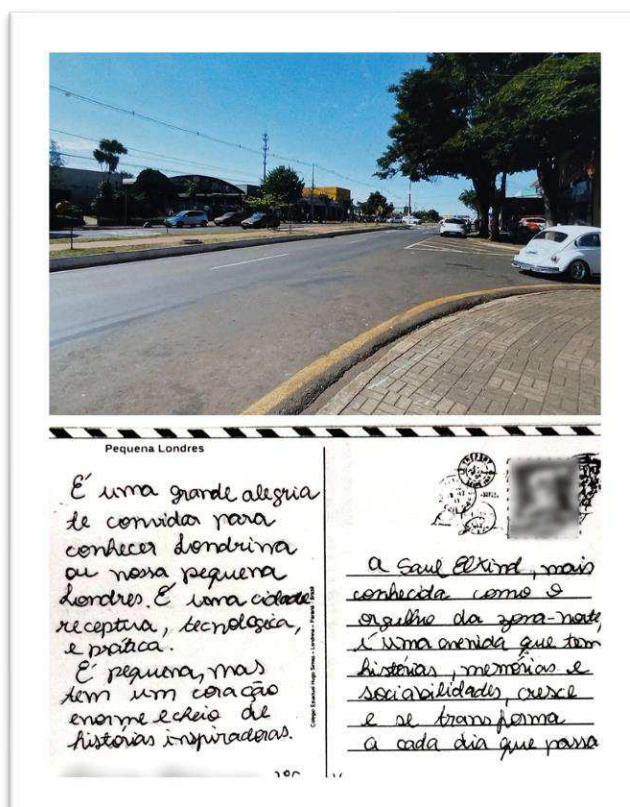 Pequena Londres
É uma grande alegria
te convidar para
conhecer Londrina
ou nossa pequena
Londres. É uma cidade
receptiva, tecnológica,
e prática.
É pequena, mas
tem um coração
enorme e cheio de
histórias inspiradoras.
Colégio Estadual Hugo Simas - Londrina - Paraná - Brasil
A Saul Elkind, mais
conhecida como o
orgulho da zona-norte,
é uma avenida que tem
histórias, memórias e
sociabilidades, cresce
e se transforma
a cada dia que passa